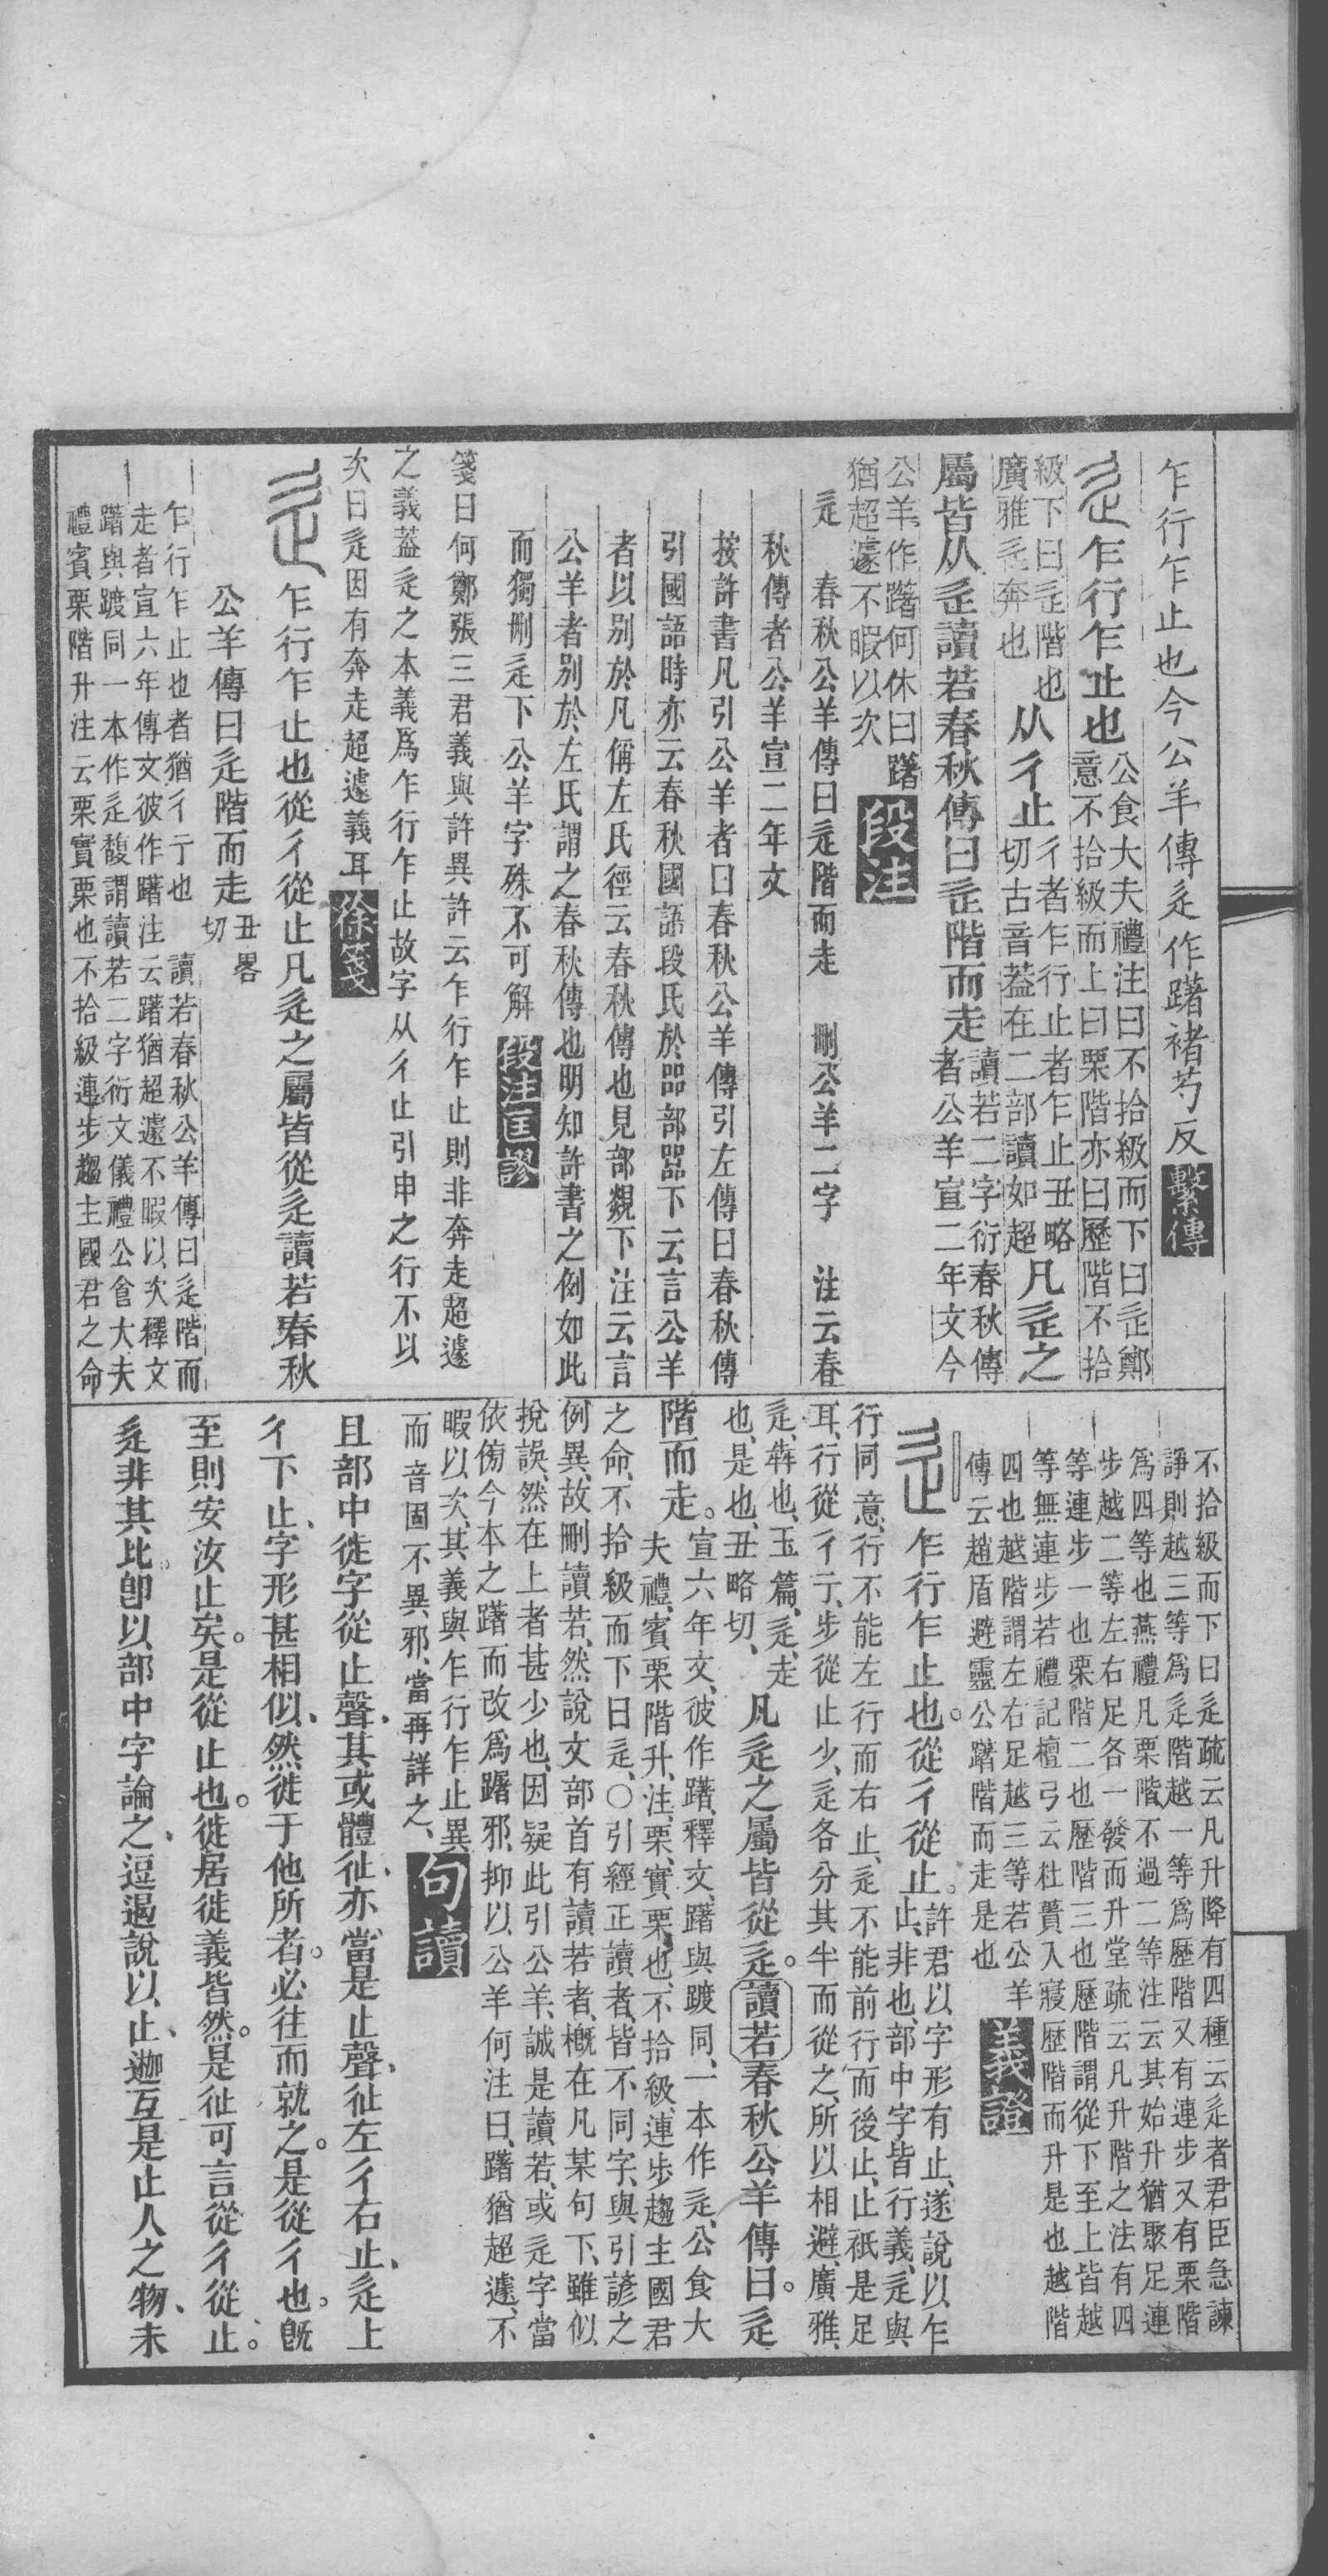 乍行乍止也今公羊傳辵作躇褚芍反 繫傳
乍行乍止也 公食大夫禮注曰不拾級而下曰辵鄭
意不拾級而上曰栗階亦曰歷階不拾
級下曰辵階也
廣雅辵奔也
从彳止 彳者乍行止者乍止丑略
切古音蓋在二部讀如超
凡辵之
屬皆从辵讀若春秋傳曰辵階而走 讀若二字衍春秋傳
者公羊宣二年文今
公羊作躇何休曰躇
猶超遽不暇以次 段注
辵 春秋公羊傳曰辵階而走 刪公羊二字 注云春
秋傳者公羊宣二年文
按許書凡引公羊者曰春秋公羊傳引左傳曰春秋傳
引國語時亦云春秋國語段氏於㗊部嚚下云言公羊
者以別於凡偁左氏徑云春秋傳也見部覢下注云言
公羊者別於左氏謂之春秋傳也明知許書之例如此
而獨刪辵下公羊字殊不可解 段注匡謬
箋曰何鄭張三君義與許異許云乍行乍止則非奔走超遽
之義葢辵之本義爲乍行乍止故字从彳止引申之行不以
次曰辵因有奔走超遽義耳 徐箋
乍行乍止也從彳從止凡辵之屬皆從辵讀若春秋
公羊傳曰辵階而走 丑畧
切
乍行乍止也者猶彳亍也 讀若春秋公羊傳曰辵階而
走者宣六年傳文彼作躇注云躇猶超遽不暇以次釋文
躇與踱同一本作辵馥謂讀若二字衍文儀禮公食大夫
禮賓栗階升注云栗實栗也不拾級連步趨主國君之命
不拾級而下曰辵疏云凡升降有四種云辵者君臣急諫
諍則越三等爲辵階越一等爲歷階又有連步又有栗階
爲四等也燕禮凡栗階不過二等注云其始升猶聚足連
步越二等左右足各一發而升堂疏云凡升階之法有四
等連步一也栗階二也歷階三也歷階謂從下至上皆越
等無連步若禮記檀弓云杜蕢入寢歷階而升是也越階
四也越階謂左右足越三等若公羊
傳云趙盾避靈公躇階而走是也 義證
乍行乍止也。從彳從止。 許君以字形有止、遂說以乍
止、非也、部中字皆行義、辵與
行同意、行不能左行而右止、辵不能前行而後止、止祇是足
耳、行從彳亍、步從止少、辵各分其半而從之、所以相避、廣雅、
辵、犇也、玉篇、辵、走
也、是也、丑略切、
凡辵之屬皆從辵。讀若春秋公羊傳曰。辵
階而走。 宣六年文、彼作躇、釋文、躇與踱同、一本作辵、公食大
夫禮、賓栗階升、注、栗、實栗也、不拾級、連步趨主國君
之命、不拾級而下曰辵、〇引經正讀者、皆不同字、與引諺之
例異、故刪讀若、然說文部首有讀若者、槪在凡某句下、雖似
挩誤、然在上者甚少也、因疑此引公羊、誠是讀若、或辵字當
依俗今本之躇而改爲躇邪、抑以公羊何注曰、躇猶超遽、不
暇以次、其義與乍行乍止異、
而音固不異邪、當再詳之、 句讀
且部中徙字從止聲、其或體𢓊、亦當是止聲、𢓊左彳右止、辵上
彳下止、字形甚相似、然徙于他所者。必往而就之。是從彳也。旣
至則安汝止矣。是從止也。徙居徙義皆然。是𢓊可言從彳從止。
辵非其比。卽以部中字論之、逗遏說以止、迣互是止人之物、未